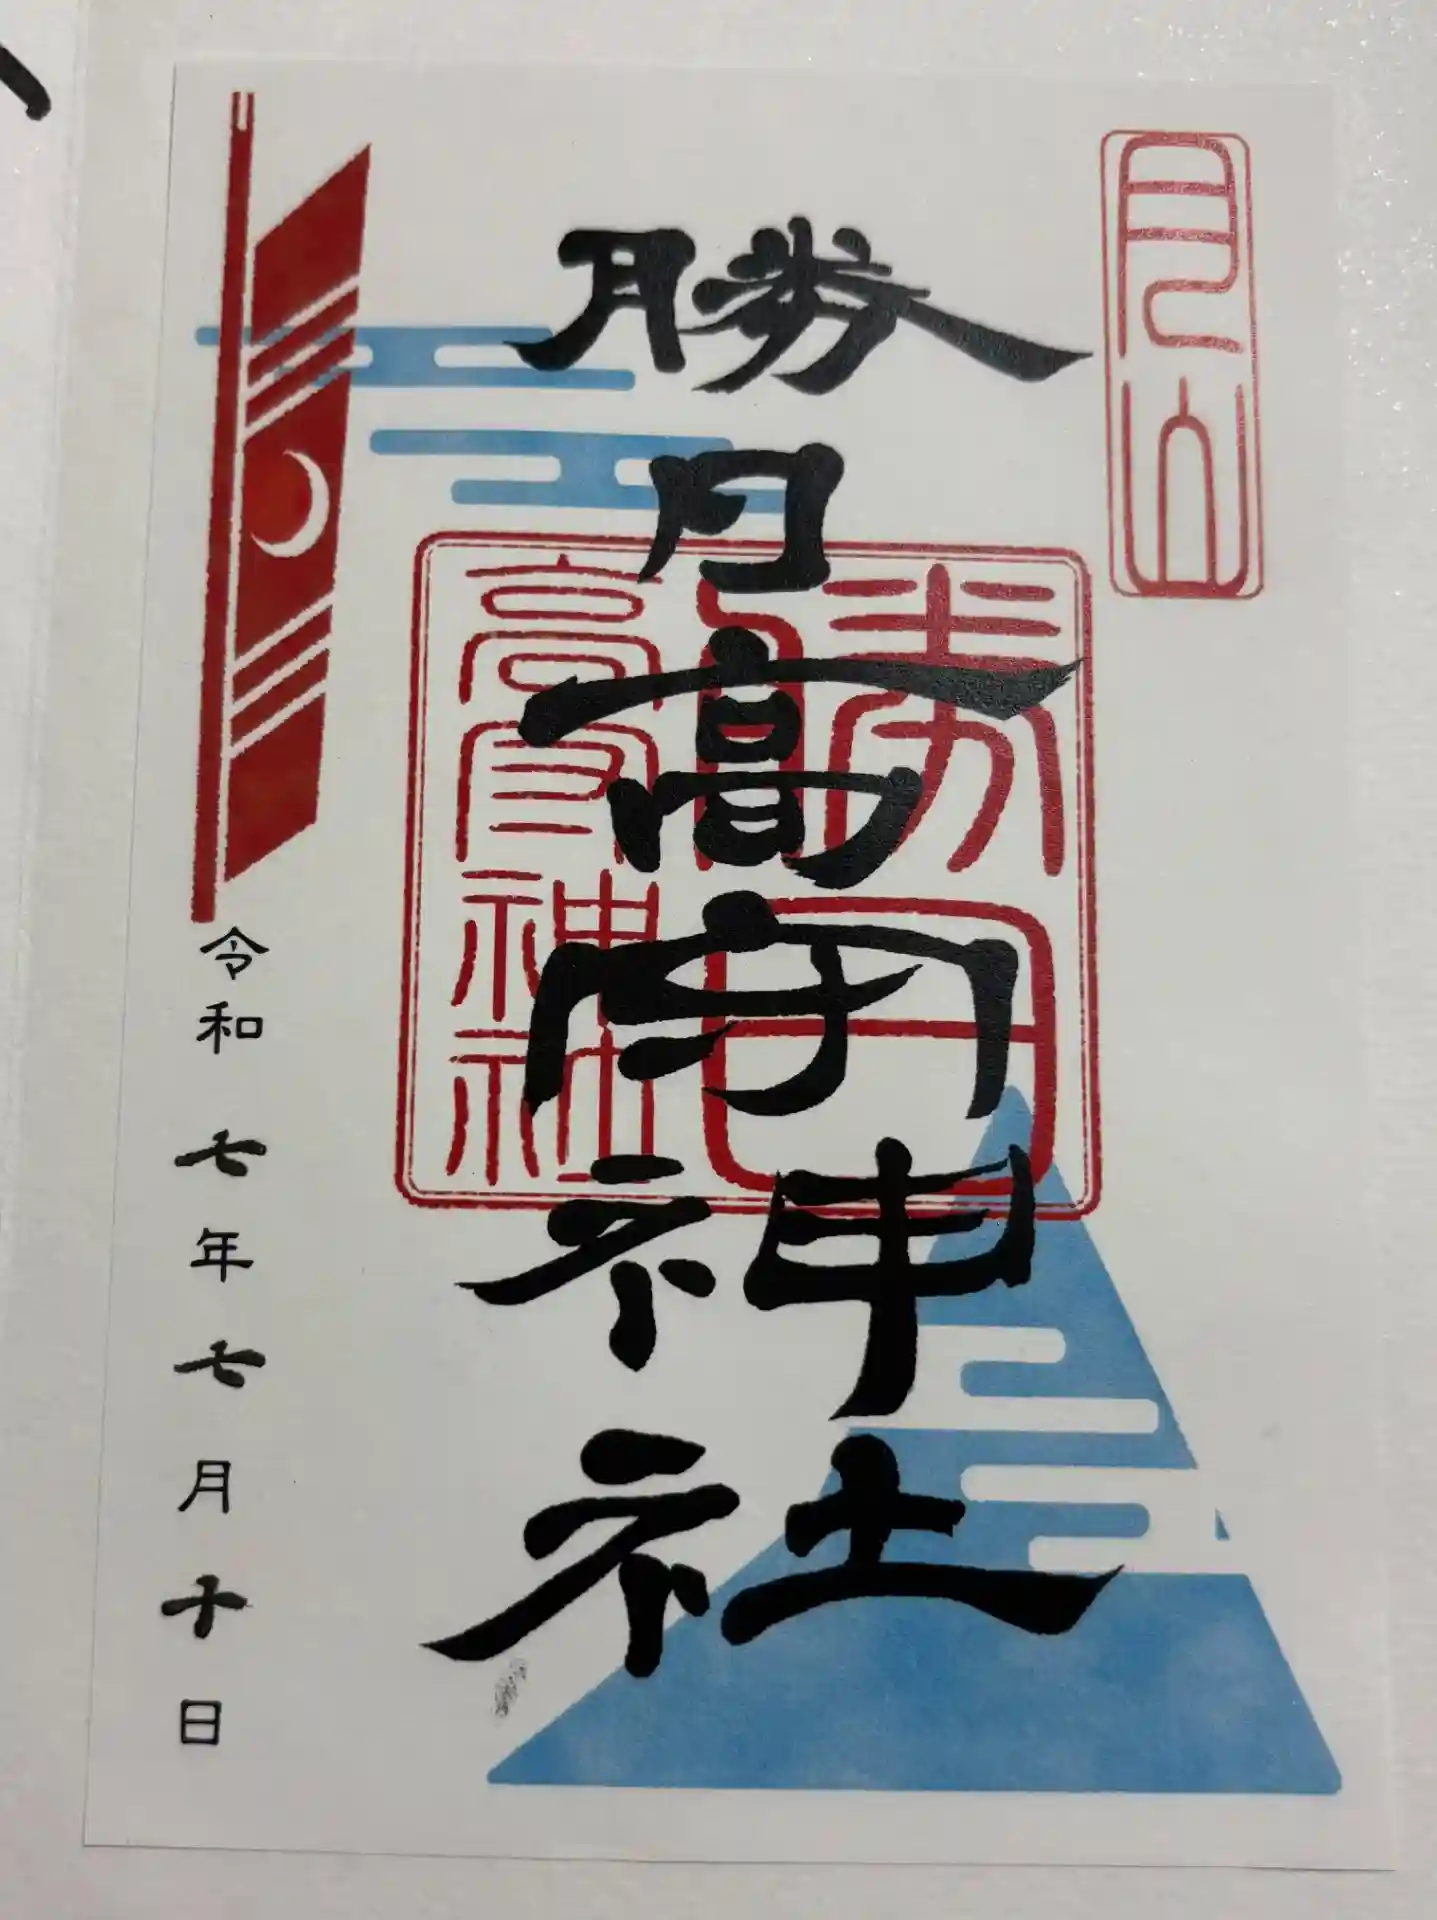 月山
勝日高守神社
勝日
高守神社
令和七年七月十日